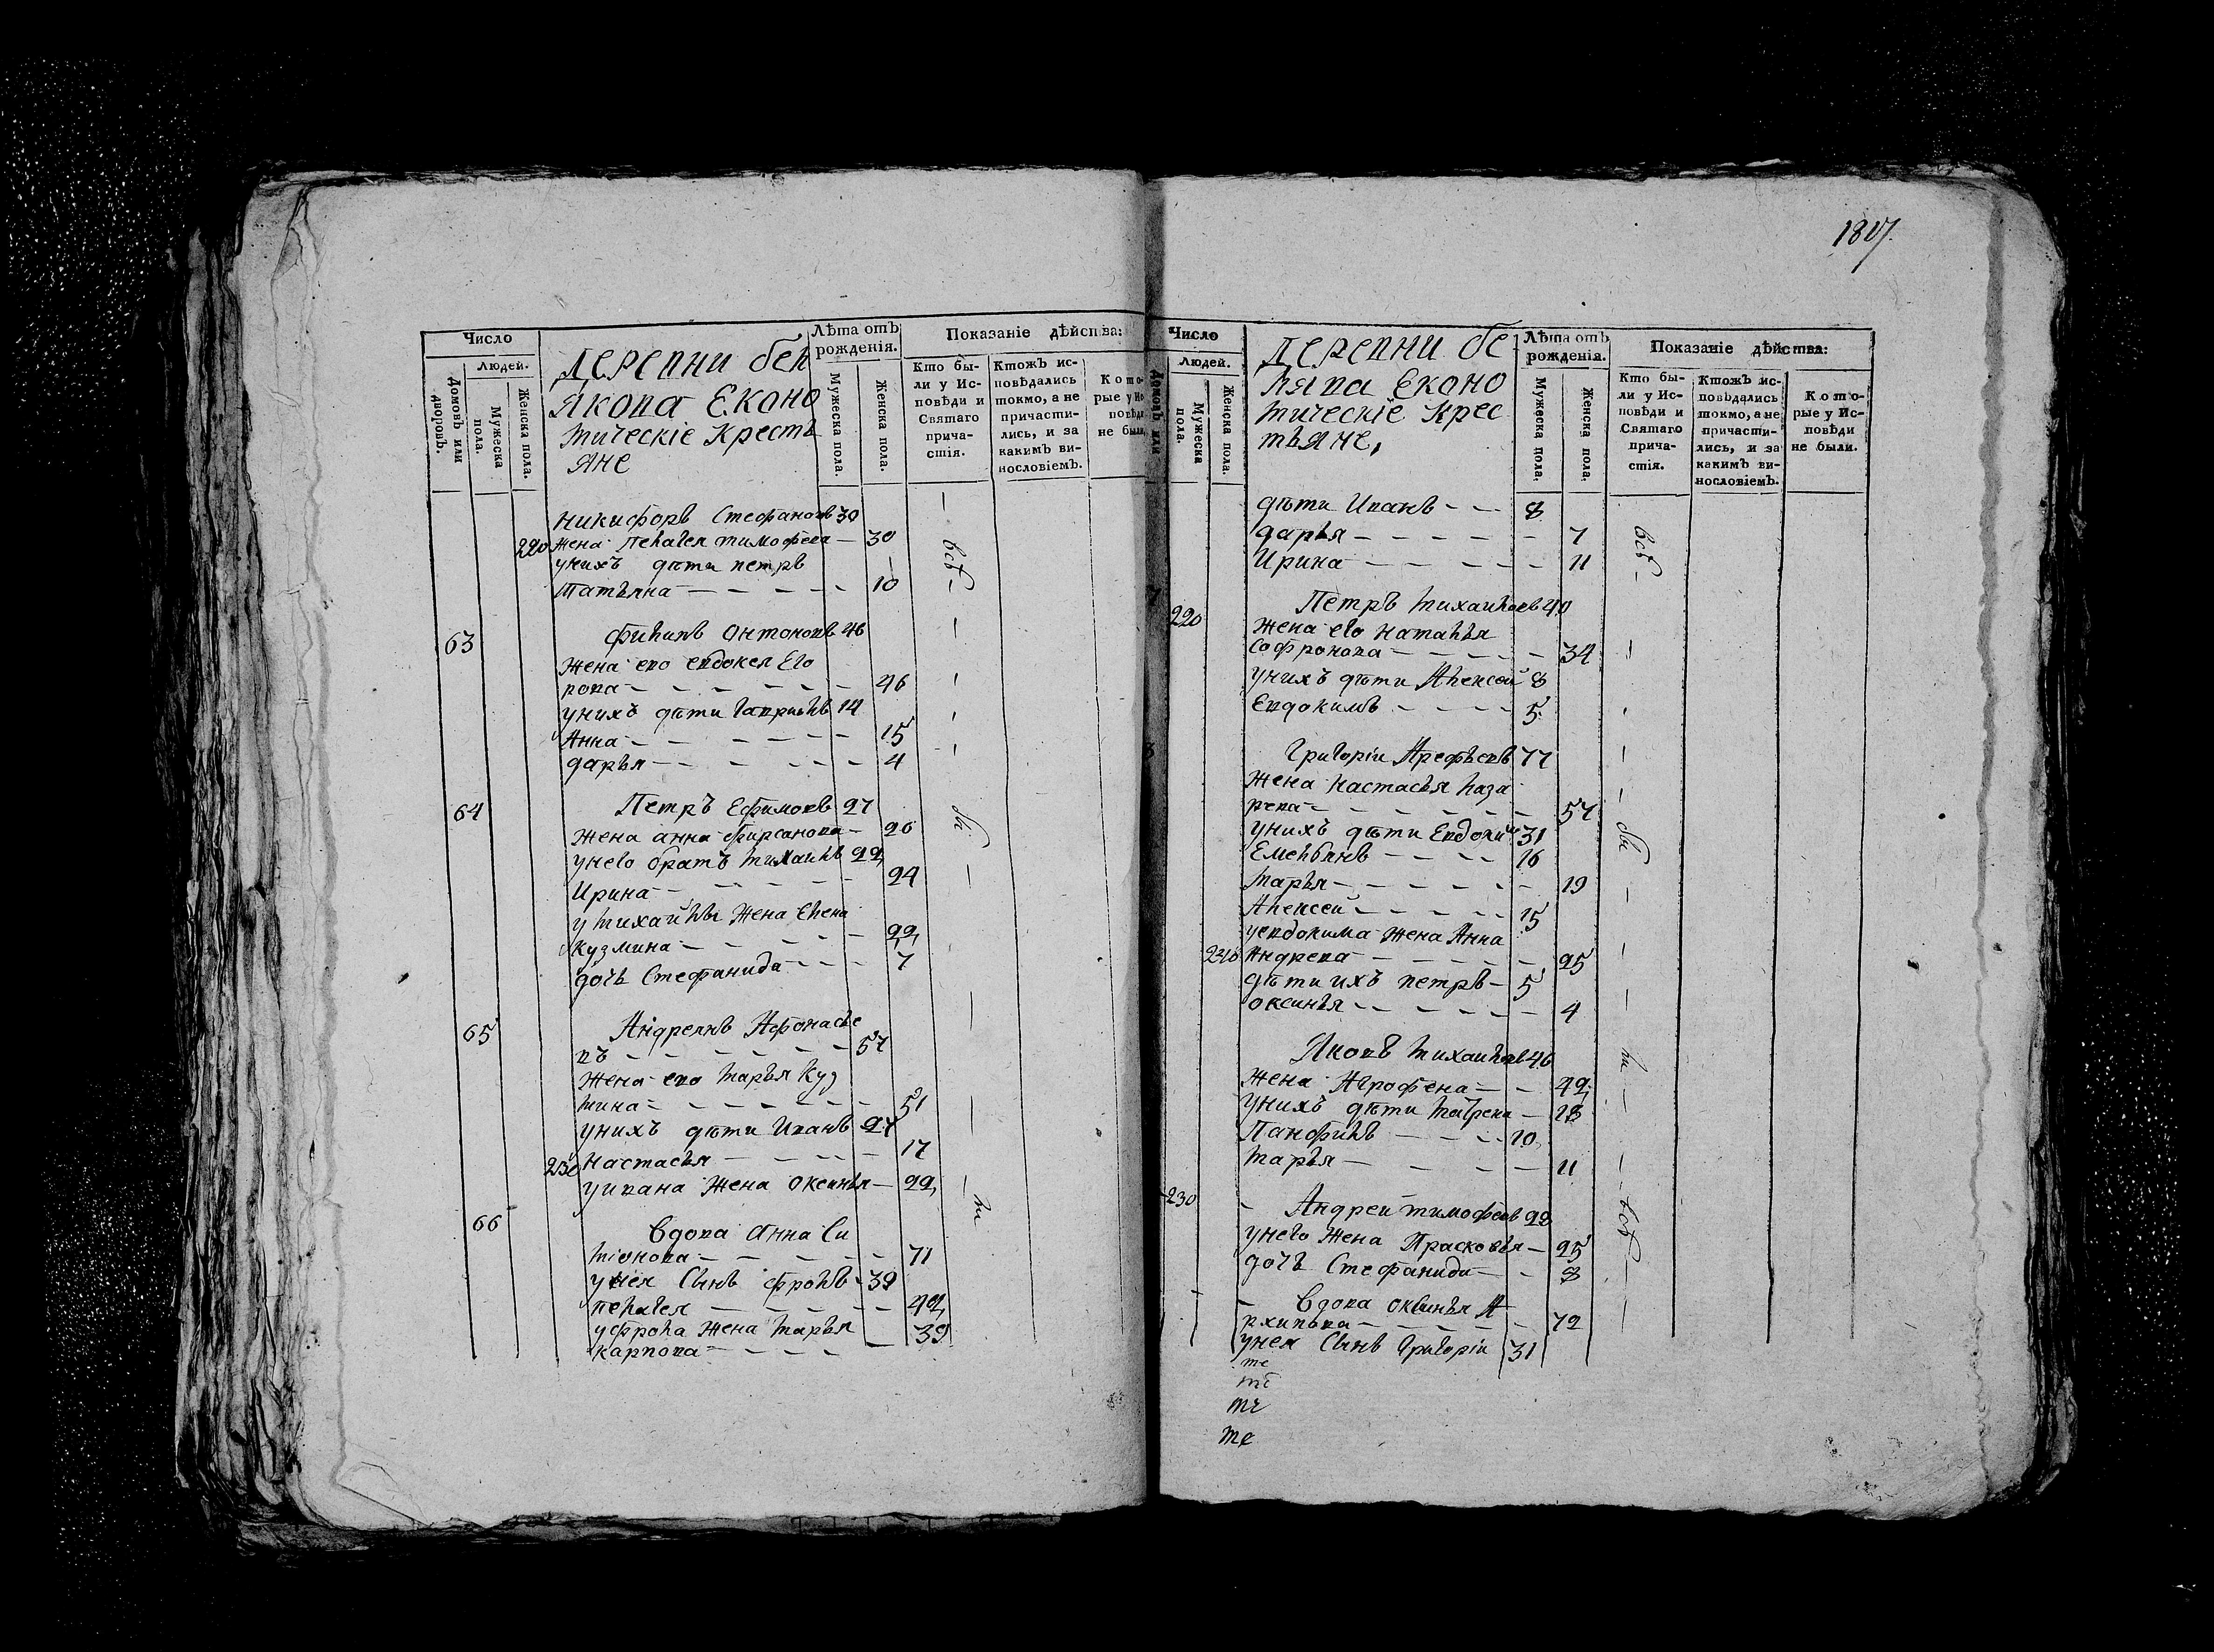 1807.
Число
Людей.
Домовъ или дворовъ.
Мужеска пола.
Женска пола.
Деревни бел
якова Еконо
мическіе Кресть
яне
Лѣта отъ рожденія.
Мужеска пола.
Женска пола.
Показаніе дѣйства:
Кто бы-
ли у Ис-
повѣди и
Святаго
прича-
стія.
Ктожъ ис-
повѣдались
токмо, а не
причасти-
лись, и за
какимъ ви-
нословіемъ.
Кото-
рые у Ис-
повѣди
не были.
Никифоръ Стефановъ 30
220 Жена Пелагея тимофева — 30
унихъ дѣти петръ
Татьяна — 10
63 Филипъ Онтоновъ 46
Жена ево евдокея Его
рова — 46
унихъ дѣти Гаврилъ 14
Анна — 15
дарья — 4
64 Петръ Ефимовъ 27
Жена анна фирсанова — 26
унего братъ михаилъ 22
Ирина — 24
у михайлы Жена елена
Кузмина — 22
дочь Стефанида — 7
65 Андреянъ Афонасье
въ — 57
Жена ево марья Куз
мина — 51
унихъ дѣти Иванъ 27
230 Настасья — 17
уивана Жена Оксинья — 22
66 Вдова Анна Си
мiонова — 71
унея Сынъ фролъ 39
пелагея — 42
уфрола Жена марья — 39
Карпова —
всѣ
бы
ли
Число
Людей.
Домовъ или
Мужеска пола.
Женска пола.
Деревни бе
лява Еконо
мическіе Крес
тьяне,
Лѣта отъ рожденія.
Мужеска пола.
Женска пола.
Показаніе дѣйства:
Кто бы-
ли у Ис-
повѣди и
Святаго
прича-
стія.
Ктожъ ис-
повѣдались
токмо, а не
причасти-
лись, и за
какимъ ви-
нословіемъ.
Кото-
рые у Ис-
повѣди
не были.
дѣти Иванъ — 8
дарья — 7
Ирина — 11
220 Петръ михаиловъ 40
Жена его наталья
Софронова — 34
унихъ дѣти Алексей 8
Евдокимъ — 5
Григоріи Арефьевъ 77
Жена настасья лаза
рева — 57
унихъ дѣти Евдоким 31
Емельянъ — 16
марья — 19
Алексей — 15
уевдокима Жена Анна
210 Андрева — 25
дѣти ихъ петръ — 5
оксинья — 4
Яковъ михаиловъ 46
Жена Аграфена — 42
унихъ дѣти маврена — 18
Панфилъ — 10
марья — 11
230 Андреи тимофеевъ 28
унего Жена Прасковья — 25
дочь Стефанида — 8
Вдова оксинья А
рхипова — 72
унея Сынъ Григоріи 31
всѣ
бы
ли
всѣ
те
те
те
те